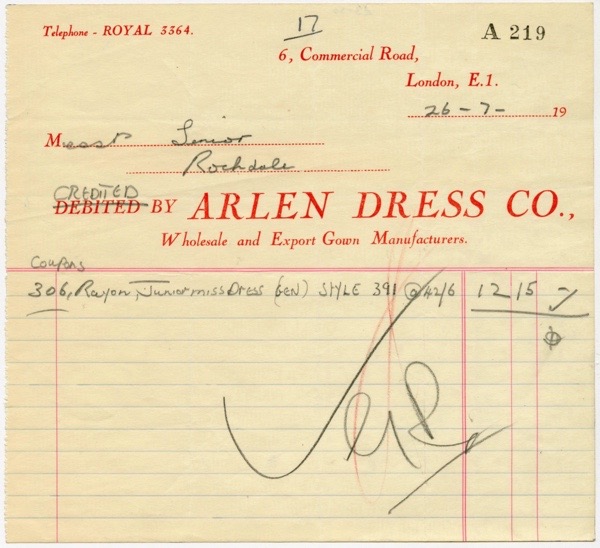 Telephone - ROYAL 3364.
17
A 219
6, Commercial Road,
London, E.1.
26-7- 19
Messrs Senior
Rochdale
CREDITED
DEBITED BY ARLEN DRESS CO.,
Wholesale and Export Gown Manufacturers.
Coupons
306, Rayon, Junior miss Dress (GEN) STYLE 391 @ 42/6 12 15 -